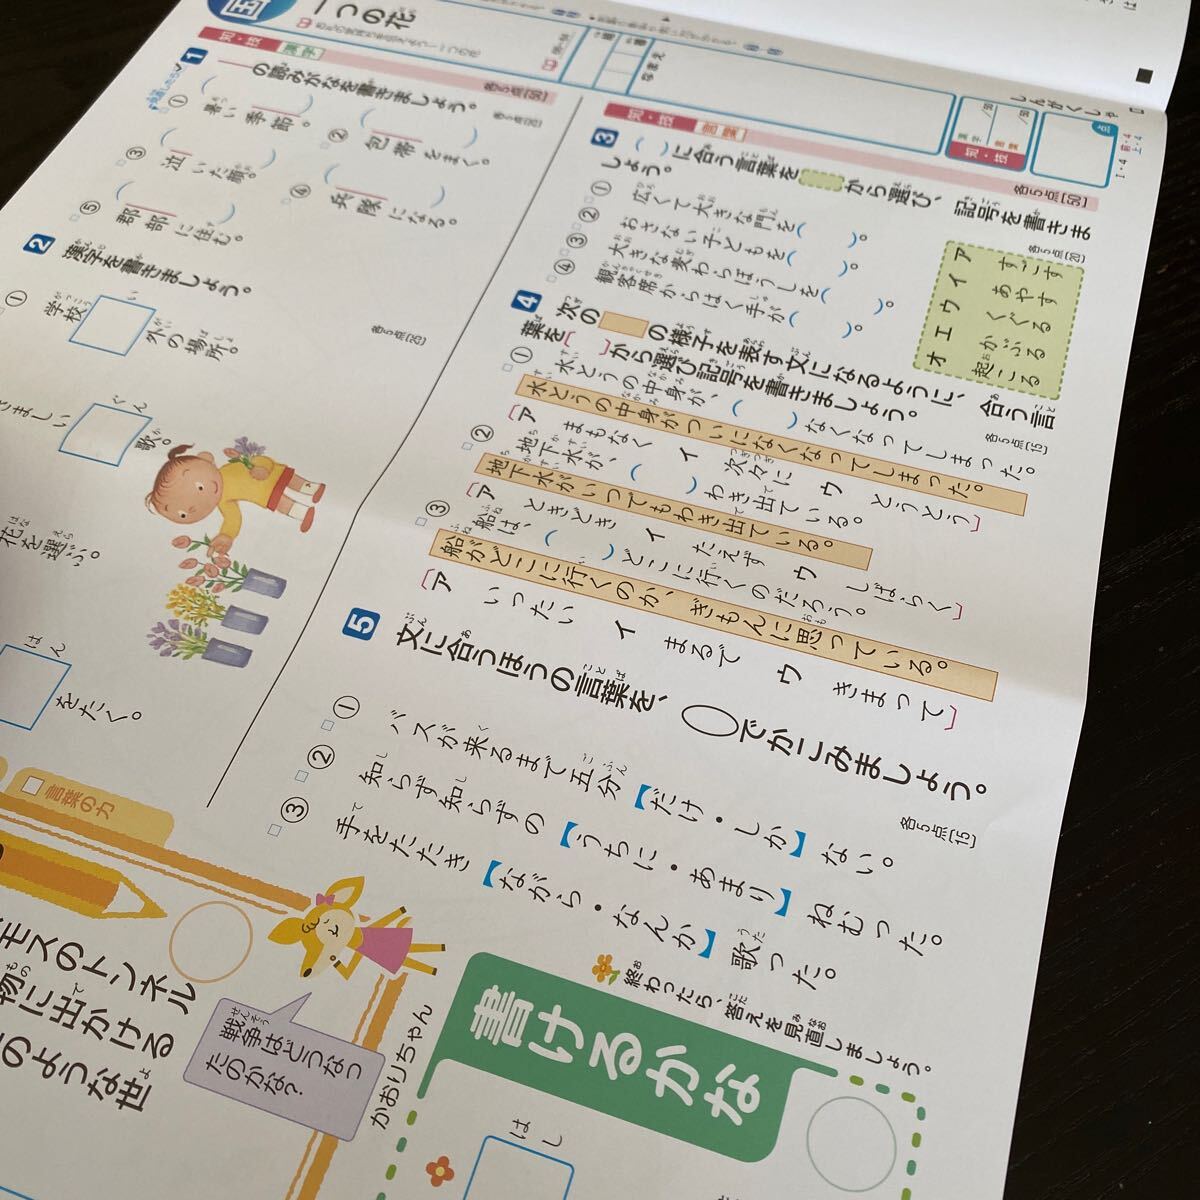 国
一つの花
なまえ
知・技
漢字
各5点[50]
1 の読みがなを書きましょう。
各5点[25]
① 暑い季節。
② 包帯をまく。
③ 泣いた顔。
④ 兵隊になる。
⑤ 郡部に住む。
2 漢字を書きましょう。
各5点[25]
① 学校 い 外の場所。
さましい
ぐん
歌。
花を選ぶ。
はん
をたく。
知・技
言葉
各5点[50]
漢字
/50
言葉
/50
知・技
点
3 ( )に合う言葉を から選び、記号を書きましょう。
各5点[20]
① 広くて大きな門を( )。
② おさない子どもを( )。
③ 大きな麦わらぼうしを( )。
④ 観客席からはく手が( )。
ア すごす
イ あやす
ウ くぐる
エ かぶる
オ 起こる
4 次の の様子を表す文になるように、合う言葉を[ ]から選び記号を書きましょう。
各5点[15]
① 水とうの中身が、( )なくなってしまった。
水とうの中身がついになくなってしまった。
[ア まもなく イ 次々に ウ とうとう]
② 地下水が、( )わき出ている。
地下水がいつでもわき出ている。
[ア ときどき イ たえず ウ しばらく]
③ 船は、( )どこに行くのだろう。
船がどこに行くのか、ぎもんに思っている。
[ア いったい イ まるで ウ きまって]
5 文に合うほうの言葉を、◯でかこみましょう。
各5点[15]
① バスが来るまで五分【だけ・しか】ない。
② 知らず知らずの【うちに・あまり】ねむった。
③ 手をたたき【ながら・なんか】歌った。
終わったら、答えを見直しましょう。
言葉の力
モスのトンネル
物に出かける
のような世
戦争はどうなったのかな?
かおりちゃん
書けるかな
はし